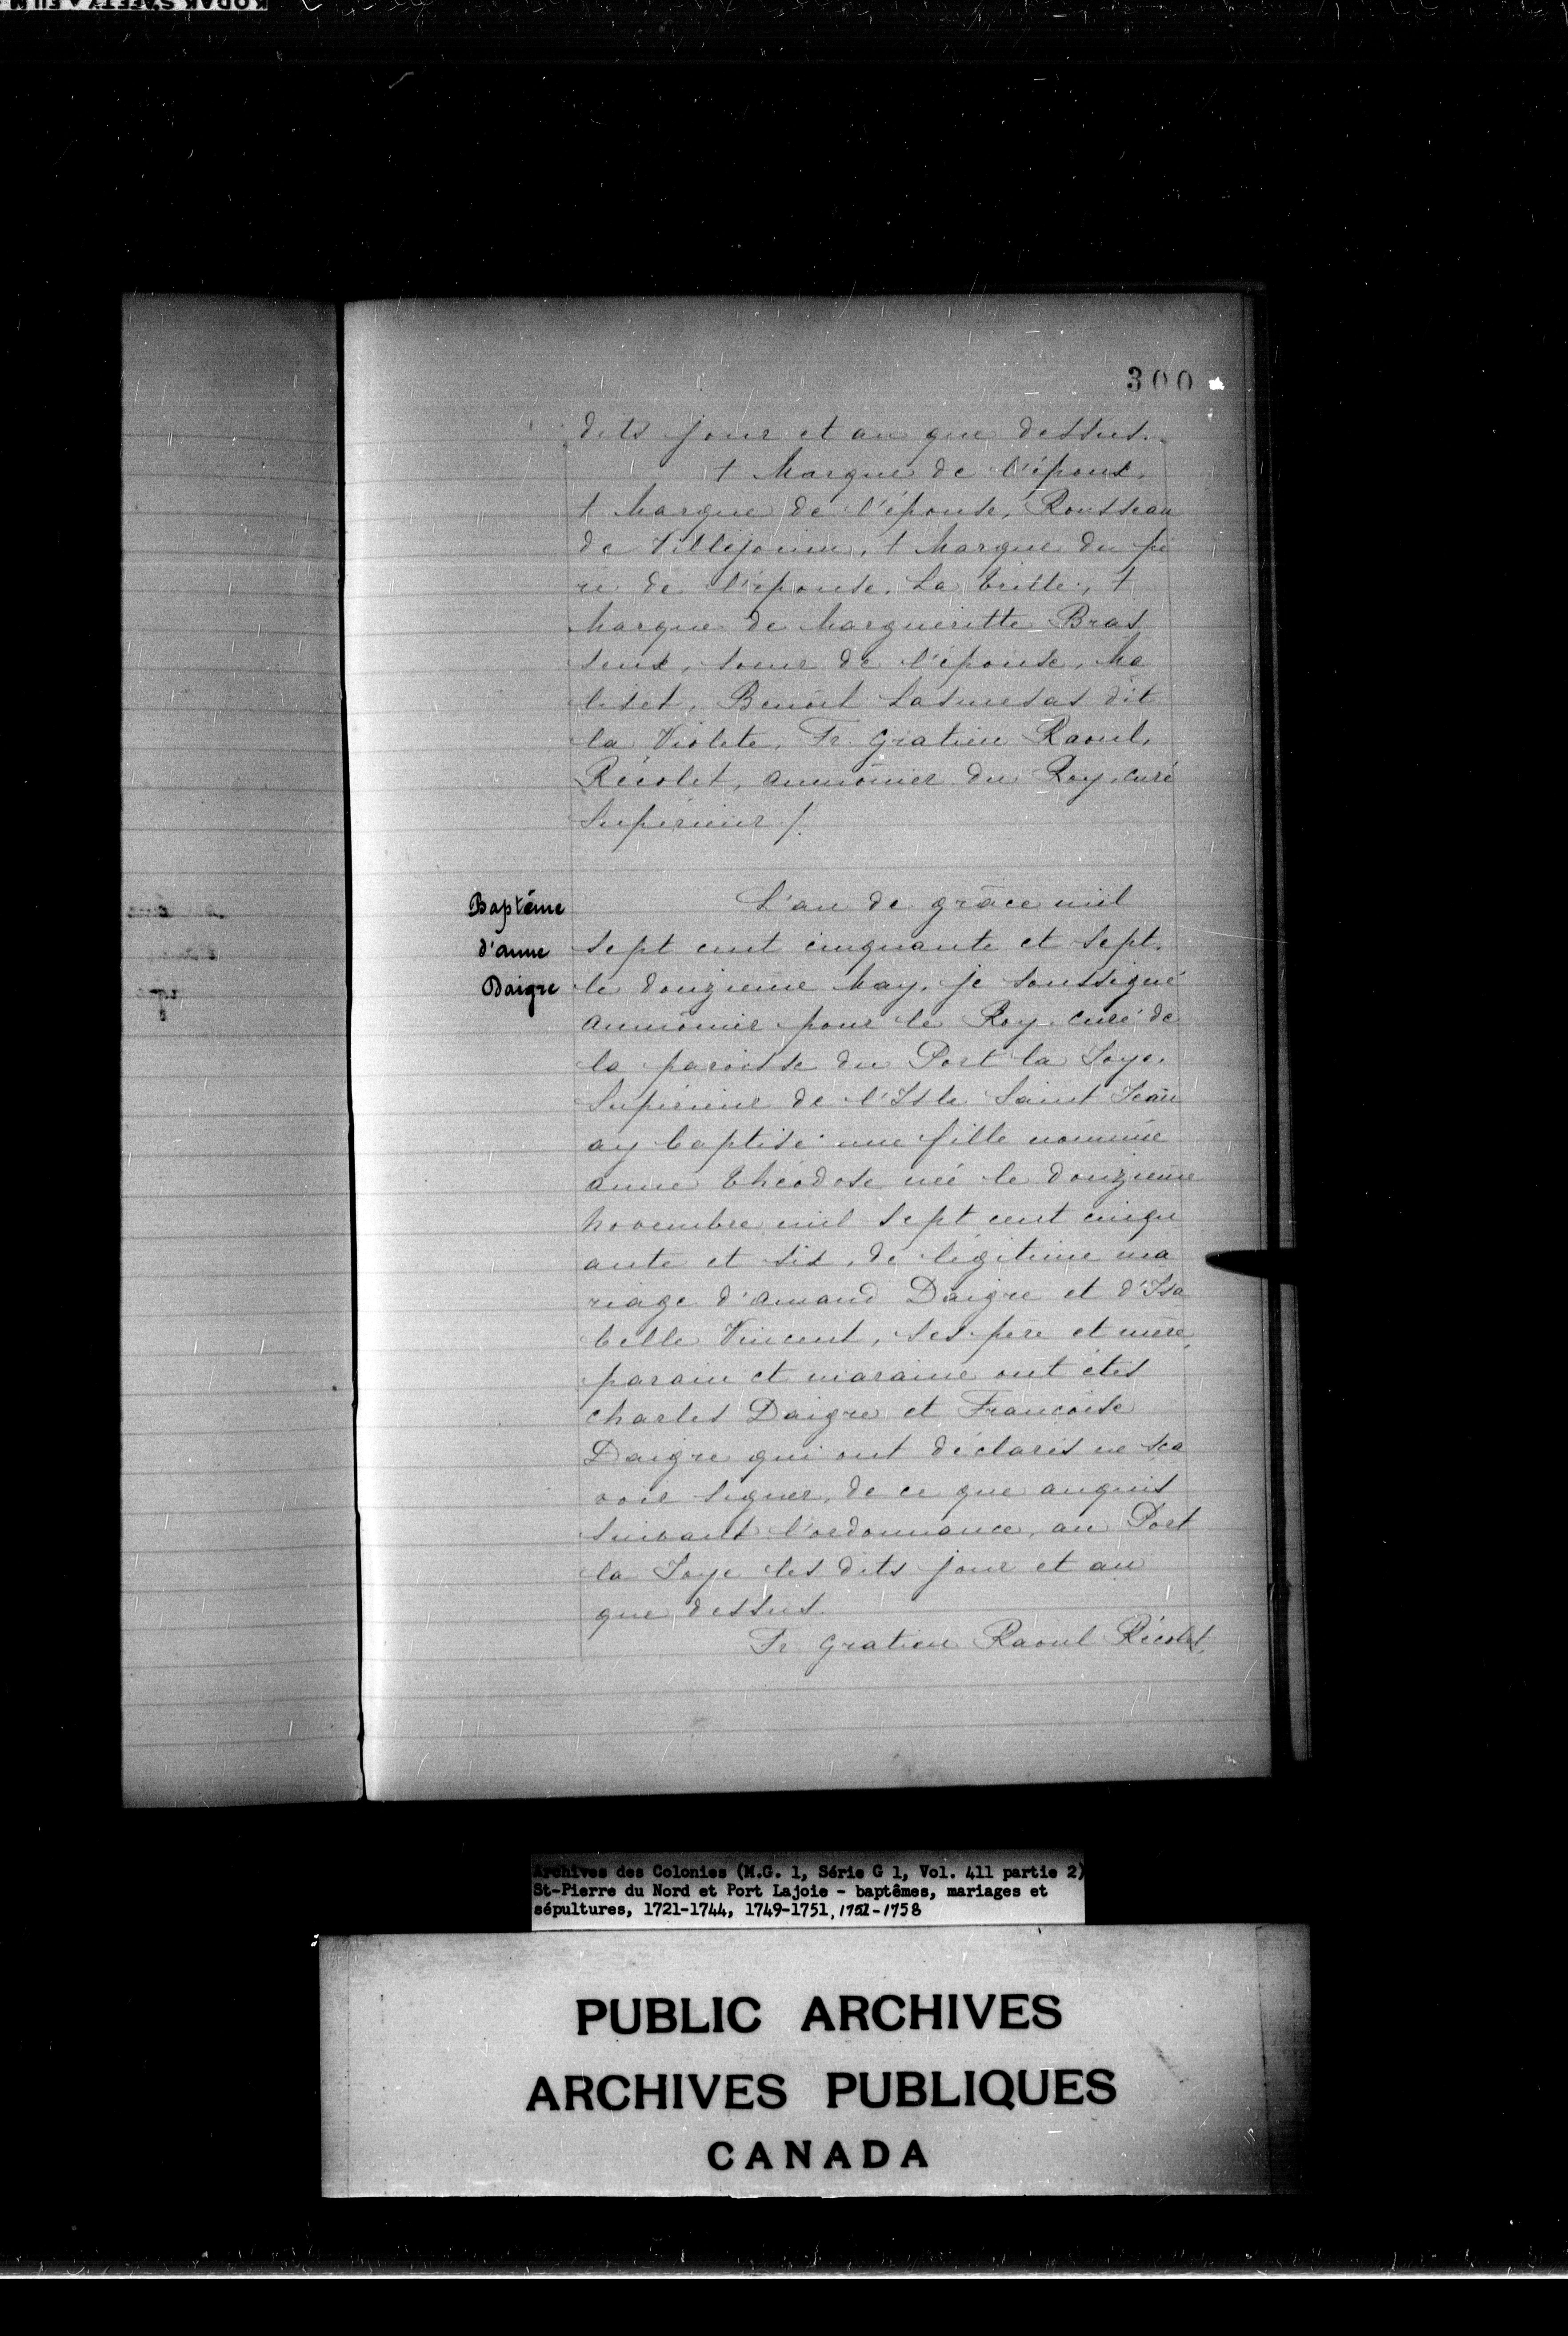 300
dits jour et an que dessus.
† Marque de l'époux,
† Marque de l'épouse, Rousseau
de Villejouin, † Marque du pe
re de l'épouse, La
Marque de Margueritte Bras
seux, soeur de l'épouse, Ma
liset, Benoit Lasmesas dit
la Violete, Fr. Gratien Raoul,
Récolet, aumônier du Roy, curé
Supérieur /.
Baptême
d'anne
Daigre
L'an de grâce mil
sept cent cinquante et sept,
le douzieme May, je soussigné
aumônier pour le Roy, curé de
la paroisse du Port la Joye,
Supérieur de l'Isle Saint Jean
ay baptisé une fille nommée
anne Théodose née le douzieme
Novembre mil sept cent cinqu
ante et six, de légitime ma
riage d'amand Daigre et d'Isa
belle Vincent, ses père et mère,
parain et maraine ont étés
charles Daigre et Francoise
Daigre qui ont déclarés ne sca
voir signer, de ce que anquis
suivant l'ordonnance, au Port
la Joye les dits jour et an
que dessus.
Fr Gratien Raoul Récolet,
Archives des Colonies (M.G. 1, Série G 1, Vol. 411 partie 2)
St-Pierre du Nord et Port Lajoie - baptêmes, mariages et
sépultures, 1721-1744, 1749-1751, 1751-1758
PUBLIC ARCHIVES
ARCHIVES PUBLIQUES
CANADA